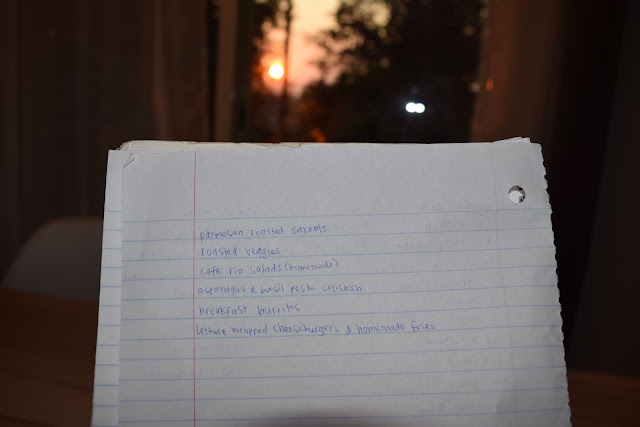 parmesan roasted carrots
roasted veggies
cafe rio salads (homemade)
asparagus & basil pesto chicken
breakfast burritos
lettuce wrapped cheeseburgers & homemade fries